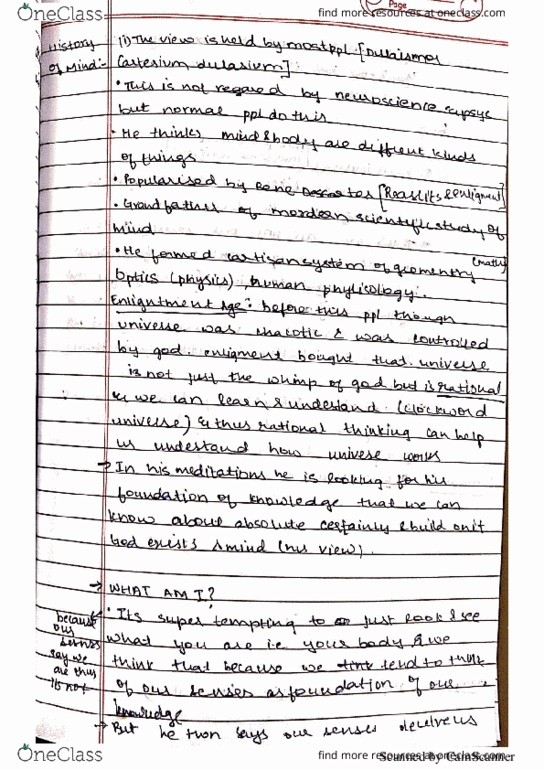 Page
OneClass
find more resources at oneclass.com
History of Mind:-
(i) The view is held by most ppl. [Dulaismor
Cartesium dulasium]:
• This is not regared by neuroscience & psyc
but normal ppl do this
• He thinks mind & body are diffrent kinds
of things
• Popularised by Rene Descartes [Realits & enligment]
• Grandfather of mordern scientific study of
Mind
• He formed cartisan system of geomentry (maths)
Optics (physics), human phylicology.
Enlightment Age: before this ppl though
universe was chacotic & was controlled
by god. enligment bought that universe
is not just the whimp of god but is rational
& we can learn & undestand. (Clockword
universe) & thus rational thinking can help
us undestand how univese works
→ In his meditations he is looking for his
foundation of knowledge that we can
know about absolute certainly & build on it
God exists & mind (his view).
→ WHAT AM I?
• Its super tempting to just look & see
what you are i.e your body & we
think that because we tend to think
of our senses as foundation of our
knowledge
because our senses say we are thus it not
→ But he then says our senses deceive us
OneClass
find more resources at oneclass.com
Scanned by CamScanner